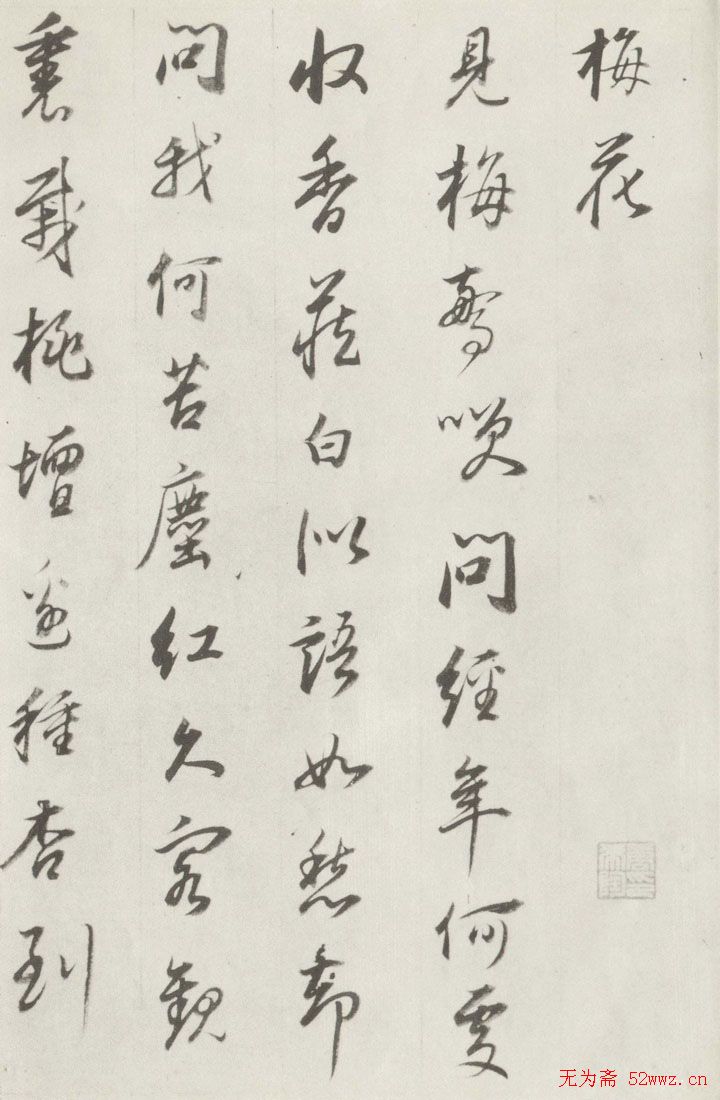 梅花
見梅驚咲問經年何處
收香藏白似語如愁却
問我何苦塵紅久客觀
裏栽桃壇邊種杏到
无为斋 52wwz.cn